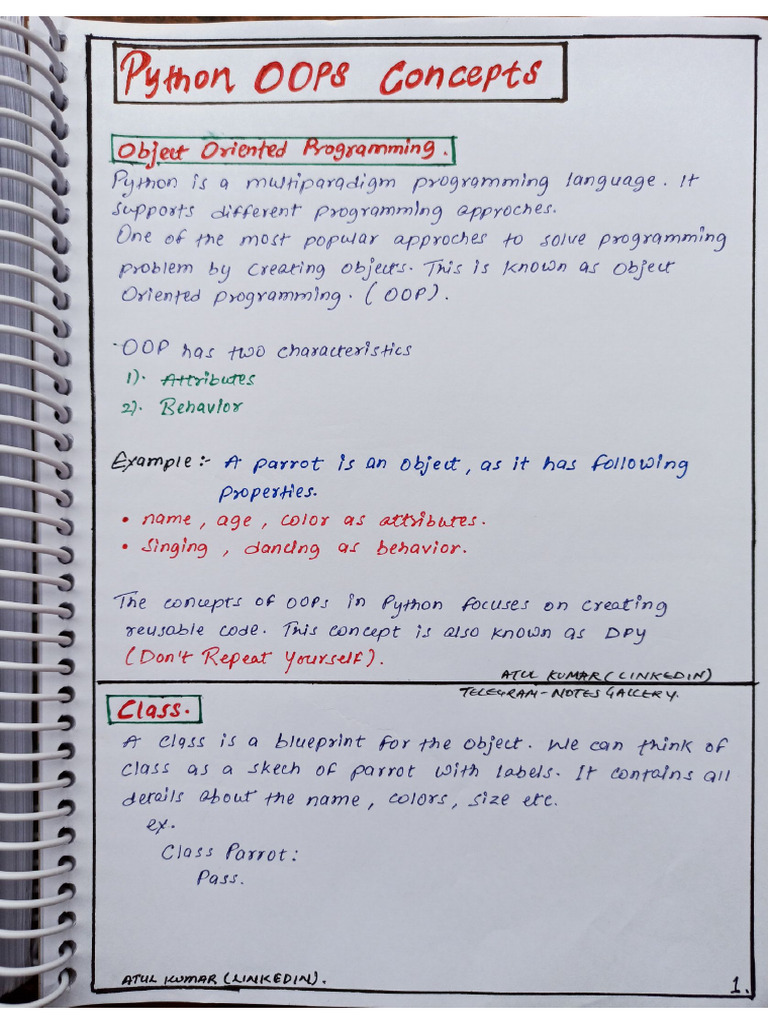 Python OOPs Concepts
Object Oriented Programming.
Python is a multiparadigm programming language. It
supports different programming approches.
One of the most popular approches to solve programming
problem by creating objects. This is known as object
Oriented programming. (OOP).
OOP has two characteristics
1). Attributes
2). Behavior
Example:- A parrot is an object, as it has following
properties.
• name, age, color as attributes.
• Singing, dancing as behavior.
The concepts of OOPs in Python focuses on creating
reusable code. This concept is also known as DPY
(Don't Repeat Yourself).
ATUL KUMAR (LINKEDIN)
TELEGRAM-NOTES GALLERY.
Class.
A class is a blueprint for the object. We can think of
class as a skech of parrot with labels. It contains all
details about the name, colors, size etc.
ex.
Class Parrot:
Pass.
ATUL KUMAR (LINKEDIN).
1.